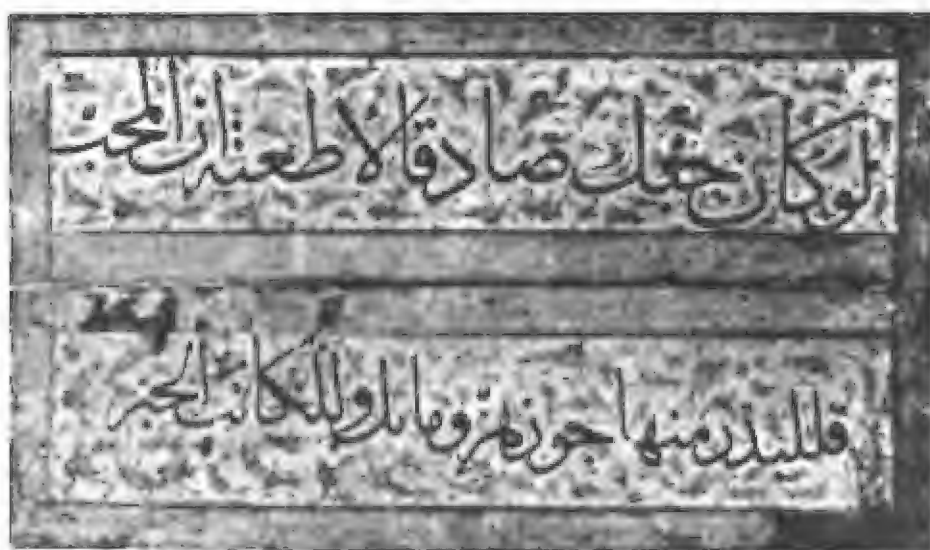 لو كان حبك صادقا لاطعته ان المحبّ
فللبدر منها جوزهرّ ومايل وللكاتب الحبر